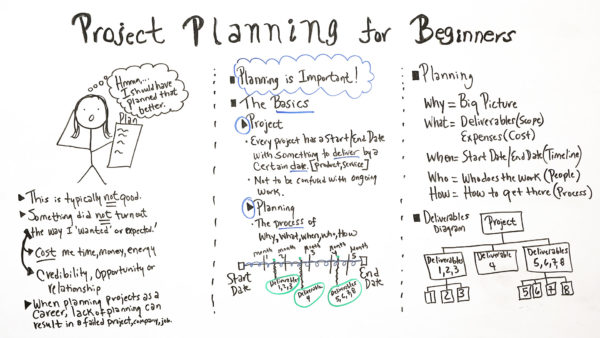 Project Planning for Beginners
Hmmm...
I should have
planned that
better.
Plan
This is typically not good.
Something did not turn out
the way I 'wanted' or expected.'
Cost me time, money, energy
Credibility, Opportunity or
relationship
When planning projects as a
career, lack of planning can
result in a failed project, company, job.
Planning is Important!
The Basics
Project
Every project has a Start/End Date
with something to deliver by a
certain date. [product, service]
Not to be confused with ongoing
work.
Planning
The process of
Why, what, when, who, How
month 1
month 2
month 3
month 4
Month 5
Start Date
End Date
Deliverables 1,2,3
Deliverable 4
Deliverables 5,6,7,8
Planning
Why = Big Picture
What = Deliverables (Scope)
Expenses (Cost)
When = Start Date/End Date (Timeline)
Who = Who does the Work (People)
How = How to get there (Process)
Deliverables
Diagram
Project
Deliverables
1,2,3
Deliverable
4
Deliverables
5,6,7,8
1 2 3
5 6 7 8